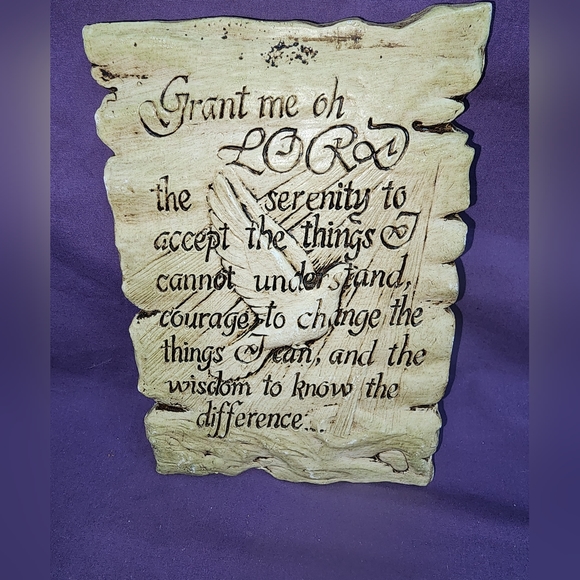 Grant me oh
LORD
the serenity to
accept the things I
cannot understand,
courage to change the
things I can, and the
wisdom to know the
difference...